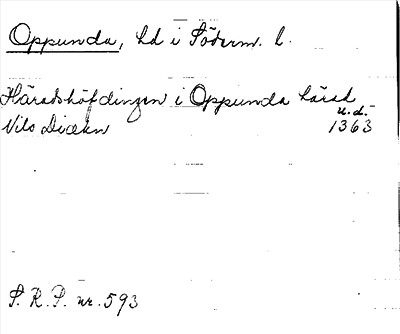 Oppunda, hd i Söderm. l.
Häradshöfdingen i Oppunda härad
u.d.
Nils Dicken 1363
S. R. P. nr. 593